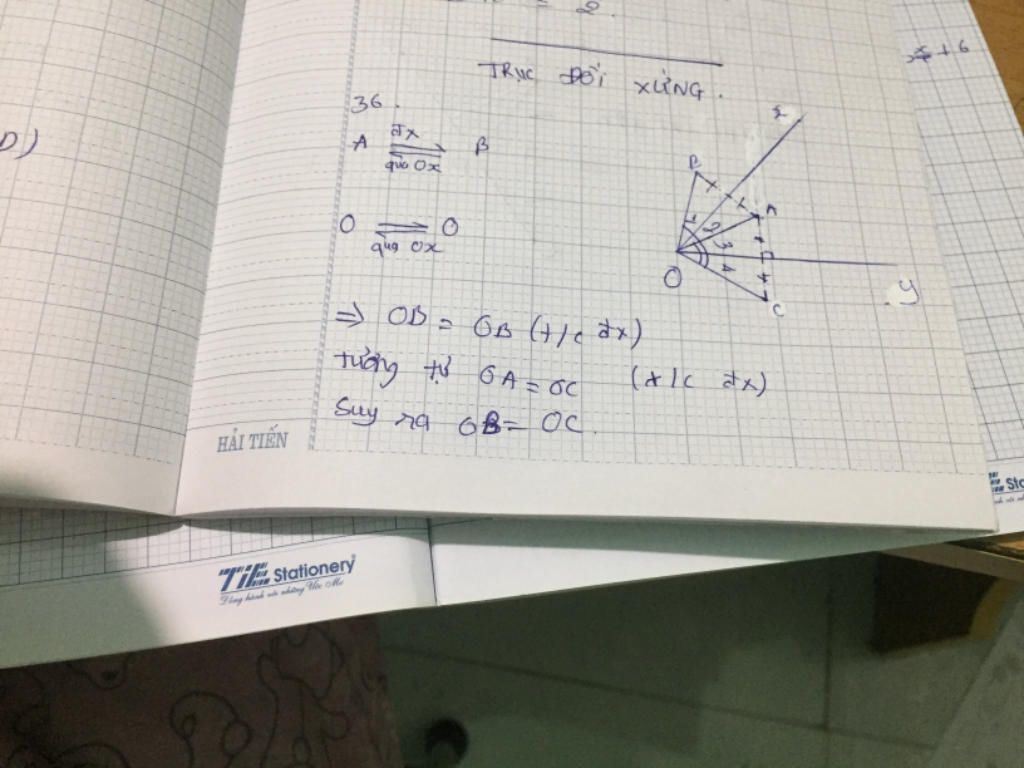 = 2.
x + 6
TRỤC ĐỐI XỨNG.
D)
36.
A đx B
qua Ox
O O
qua Ox
B
x
A
1 2 3 4
O
y
C
⇒ OB = OB (t/c đx)
tương tự OA = OC (t/c đx)
Suy ra OB = OC.
HẢI TIẾN
TiE Stationery
Đồng hành với những Ước Mơ